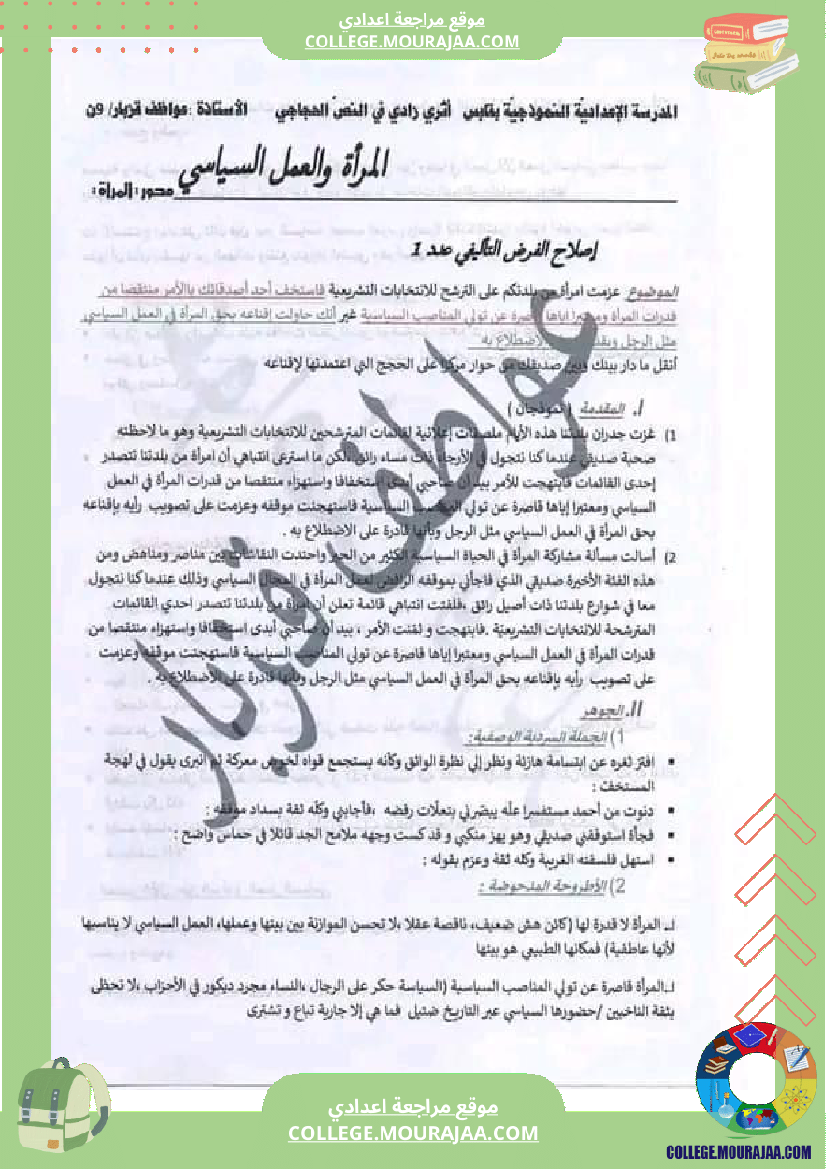 موقع مراجعة اعدادي
COLLEGE.MOURAJAA.COM
المدرسة الإعداديّة النموذجيّة بقابس أثري زادي في النصّ الحجاجي الأستاذة :عواطف قزبار/ 9ن
المرأة والعمل السياسي
محور: المرأة:
إصلاح الفرض التأليفي عدد 1
الموضوع عزمت امرأة من بلدتكم على الترشح للانتخابات التشريعية فاستخف أحد أصدقائك بالأمر منتقصا من
قدرات المرأة ومعتبرا إياها قاصرة عن تولي المناصب السياسية غير أنك حاولت إقناعه بحق المرأة في العمل السياسي
مثل الرجل الاضطلاع به
أنقل ما دار بينك وبين صديقك من حوار مركزا على الحجج التي اعتمدتها لإقناعه
I. المقدمة (نموذجان)
1) غزت جدران بلدتنا هذه الأيام ملصقات إعلانية لقائمات المترشحين للانتخابات التشريعية وهو ما لاحظته
صحبة صديقي عندما كنا نتجول في الأرجاء ذات مساء رائق .لكن ما استرعى انتباهي أن امرأة من بلدتنا تتصدر
إحدى القائمات فابتهجت للأمر بيد أن صاحبي أبدى استخفافا واستهزاء منتقصا من قدرات المرأة في العمل
السياسي ومعتبرا إياها قاصرة عن تولي المناصب السياسية فاستهجنت موقفه وعزمت على تصويب رأيه بإقناعه
بحق المرأة في العمل السياسي مثل الرجل وبأنها قادرة على الاضطلاع به .
2) أسالت مسألة مشاركة المرأة في الحياة السياسية الكثير من الحبر واحتدت النقاشات بين مناصر ومناهض ومن
هذه الفئة الأخيرة صديقي الذي فاجأني بموقفه الرافض لعمل المرأة في المجال السياسي وذلك عندما كنا نتجول
معا في شوارع بلدتنا ذات أصيل رائق .فلفتت انتباهي قائمة تعلن أن امرأة من بلدتنا تتصدر احدي القائمات
المترشحة للانتخابات التشريعيّة .فابتهجت و ثمنت الأمر ، بيد أن صاحبي أبدى استخفافا واستهزاء منتقصا من
قدرات المرأة في العمل السياسي ومعتبرا إياها قاصرة عن تولي المناصب السياسية فاستهجنت موقفه وعزمت
على تصويب رأيه بإقناعه بحق المرأة في العمل السياسي مثل الرجل وبأنها قادرة على الاضطلاع به .
II. الجوهر
1) الجملة السردية الوصفية:
▪ افترّ ثغره عن إبتسامة هازئة ونظر إلي نظرة الواثق وكأنه يستجمع قواه لخوض معركة ثم انبرى يقول في لهجة
المستخف :
▪ دنوت من أحمد مستفسرا علّه يبصّرني بتعلّات رفضه ،فأجابني وكلّه ثقة بسداد موقفه :
▪ فجأة استوقفني صديقي وهو يهز منكبي و قد كست وجهه ملامح الجد قائلا في حماس واضح :
▪ استهل فلسفته الغريبة وكله ثقة وعزم بقوله :
2) الأطروحة المدحوضة :
المرأة لا قدرة لها (كائن هش ضعيف، ناقصة عقلا ،لا تحسن الموازنة بين بيتها وعملها، العمل السياسي لا يناسبها
لأنها عاطفية) فمكانها الطبيعي هو بيتها
المرأة قاصرة عن تولي المناصب السياسية (السياسة حكر على الرجال ،النساء مجرد ديكور في الأحزاب ،لا تحظى
بثقة الناخبين /حضورها السياسي عبر التاريخ ضئيل فما هي إلا جارية تباع و تشترى
موقع مراجعة اعدادي
COLLEGE.MOURAJAA.COM
COLLEGE.MOURAJAA.COM
عواطف قزبار